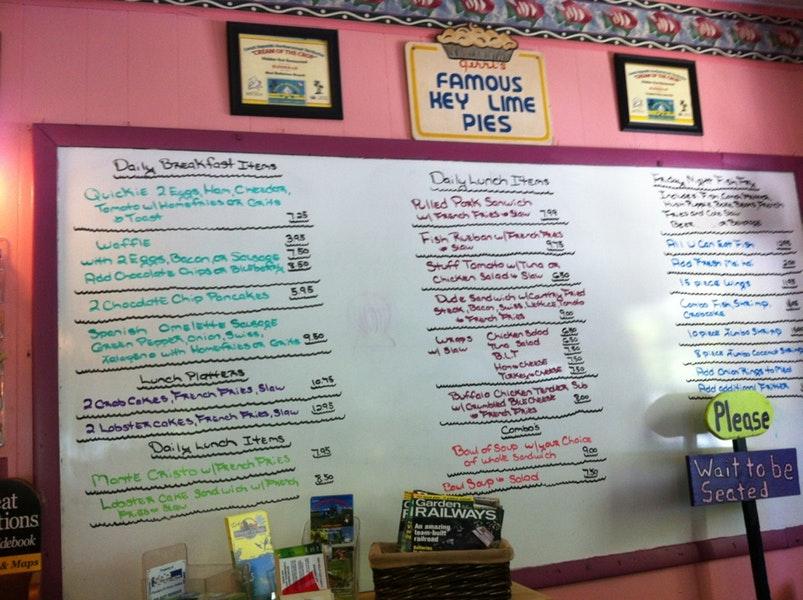 "CREAM OF THE CROP"
Gerri's
FAMOUS
KEY LIME
PIES
"CREAM OF THE CROP"
Daily Breakfast Items
Quickie 2 Eggs, Ham, Cheddar,
Tomato w/ Homefries or Grits
& Toast 7.25
Waffle 3.95
with 2 Eggs, Bacon or Sausage 7.50
Add Chocolate Chips or Blueberry 8.50
2 Chocolate Chip Pancakes 5.95
Spanish Omelette Sausage
Green Pepper, Onion, Swiss,
Jalapeno with Homefries or Grits 9.50
Lunch Platters
2 Crab Cakes, French Fries, Slaw 10.95
2 Lobster Cakes, French Fries, Slaw 12.95
Daily Lunch Items
Monte Cristo w/ French Fries 7.95
Lobster Cake Sandwich w/ French 8.50
Fries & Slaw
Daily Lunch Items
Pulled Pork Sandwich
w/ French Fries & Slaw 7.99
Fish Rueban w/ French Fries
& Slaw 9.75
Stuff Tomato w/ Tuna or
Chicken Salad & Slaw 6.50
Dude Sandwich w/ Country Fried
Steak, Bacon, Swiss, Lettuce, Tomato
& French Fries 9.00
Wraps Chicken Salad
w/ Slaw Tuna Salad
B.L.T
Ham & Cheese
Turkey & Cheese 7.50
Buffalo Chicken Tender Sub
w/ Crumbled Blue Cheese 8.00
& French Fries
Combo's
Bowl of Soup w/ your Choice
of whole Sandwich 9.00
Bowl Soup & Salad 7.50
Friday Night Fish Fry
Includes Fish,
Hush Puppie, Baked Beans, French
Fries and Cole Slaw
Beer or Beverage
All U Can Eat Fish
Add Fresh
15 piece Wings
Combo Fish, Shrimp,
Crabcake
10 piece Jumbo Shrimp
8 piece Jumbo Coconut Shrimp
Add Onion Rings to Meal
Add additional Fritter
Please
Wait to be
Seated
Garden
RAILWAYS
An amazing
team-built
railroad
& Maps